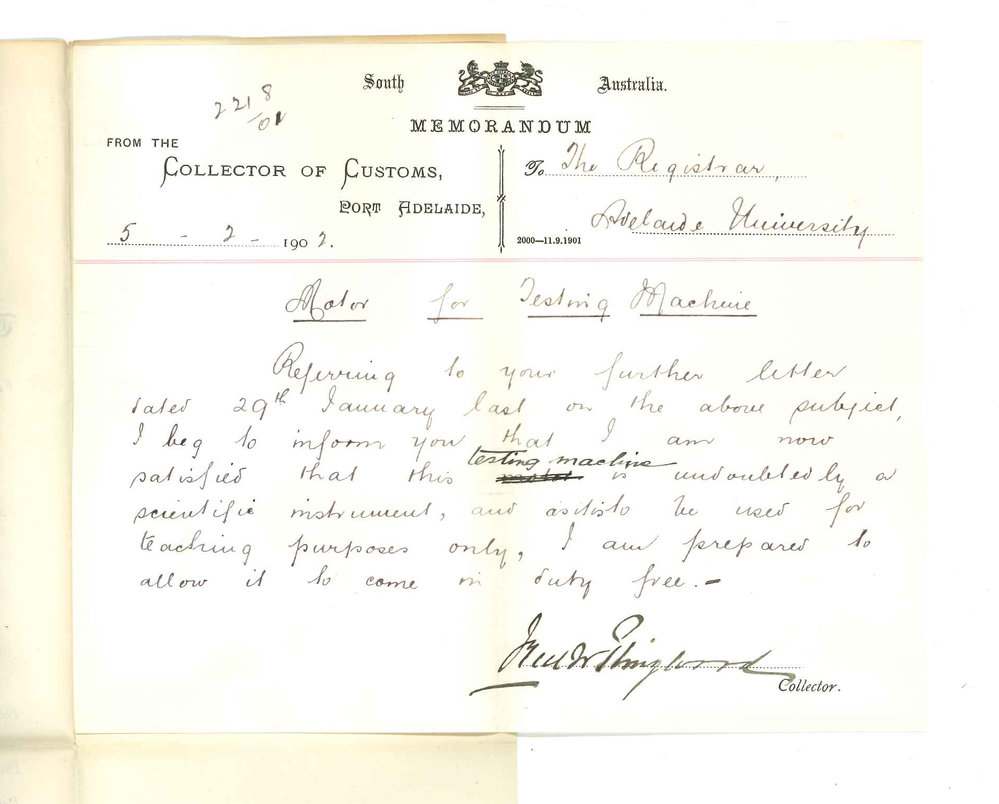 South Australia.
2218/01
MEMORANDUM
FROM THE
COLLECTOR OF CUSTOMS,
PORT ADELAIDE,
5 - 2 - 1902.
To The Registrar,
Adelaide University
2000—11.9.1901
Motor for Testing Machine
Referring to your further letter
dated 29th January last on the above subject,
I beg to inform you that I am now
testing machine
satisfied that this motor is undoubtedly a
scientific instrument, and as it is to be used for
teaching purposes only, I am prepared to
allow it to come in duty free. –
Collector.